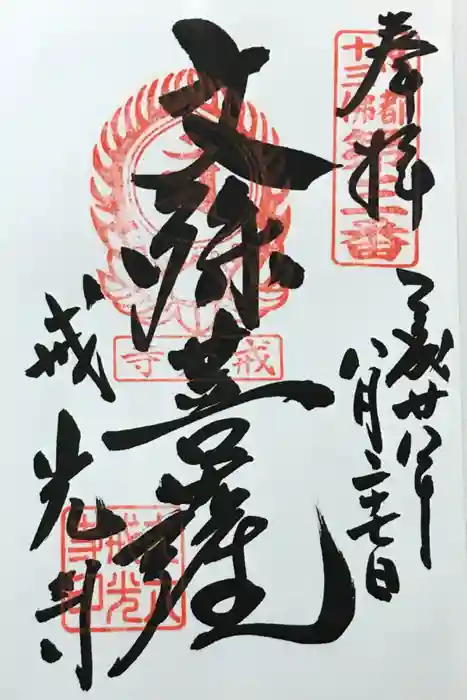 奉拝
京都十三佛第三番
平成廿八年
八月二十七日
文殊菩薩
戒光寺
戒光寺
丈六戒光寺印